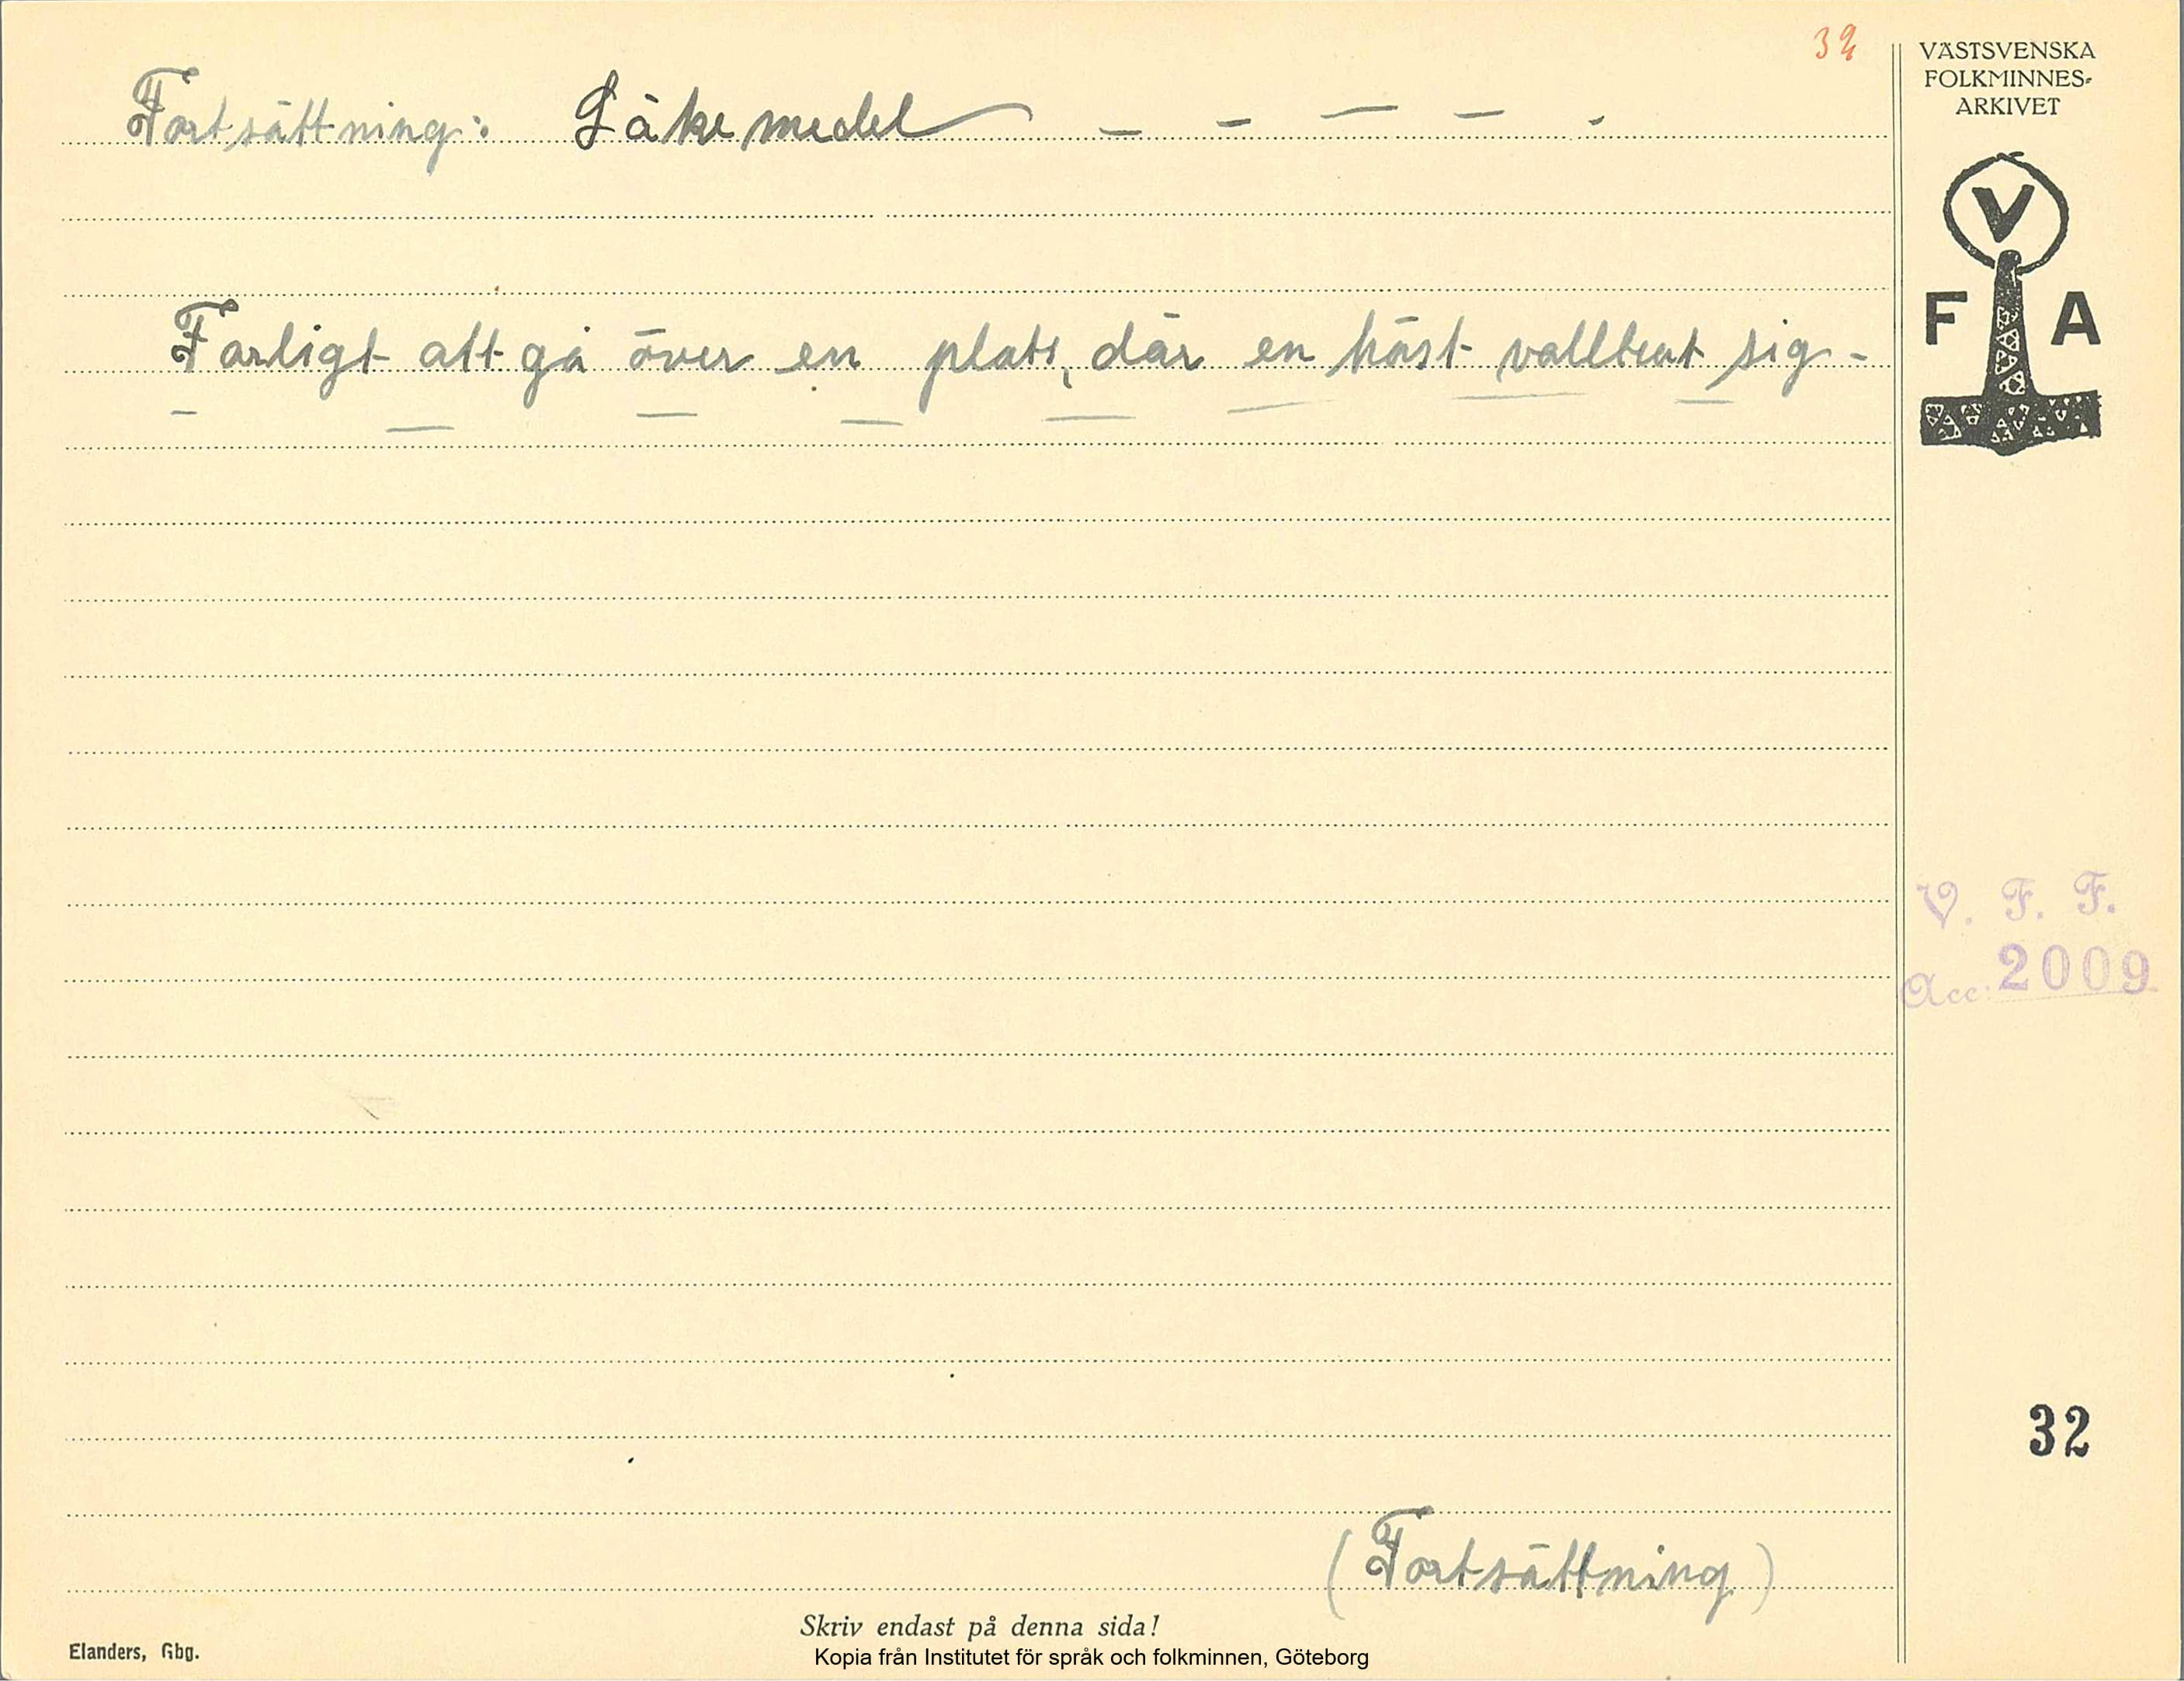 32
VÄSTSVENSKA
FOLKMINNES-
ARKIVET
Fortsättning: Läkemedel — – — – -
V
F A
Farligt att gå över en plats, där en häst valltrat sig -
V. F. F.
Acc. 2009
32
(Fortsättning)
Skriv endast på denna sida!
Elanders, Gbg.
Kopia från Institutet för språk och folkminnen, Göteborg